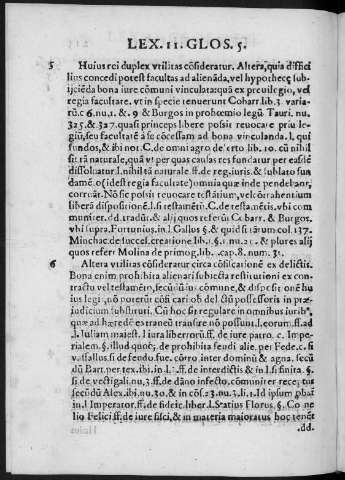 LEX. 11. GLOS. 5.
5 Huius rei duplex vtilitas cõsideratur. Altera, quia diffici
lius concedi potest facultas ad alienãda, vel hypothecę sub-
ijciẽda bona iure cõmuni vinculata: quã ex preuilegio, vel
regia facultate. vt in specie tenuerunt Cobarr. lib. 3. varia-
rũ. c. 6. nu. 1. & 9. & Burgos in prohœmio legũ Tauri. nu.
325. & 327. quasi princeps libere possit reuocare priui le-
giũ, seu facultatẽ à se cõcessam ad bona vinculanda. l. qui
fundos, & ibi not. C. de omni agro de
lib. 10. cũ nihil
sit tã naturale, quã vt per quas caulas res fundatur per easdẽ
dissoluatur. l. nihil tã naturale. ff. de reg. iuris. & sublato fun
damẽto (id est regia facultate) omnia quæ inde pendebant,
corruãt. Nõ sic possit reuocare testãtium, vel cõtrahentium
liberã dispositionẽ. l. si testamẽtis. C. de testamẽtis. vbi com
muniter. dd. tradũt. & alij quos referũt Cobarr. & Burgos.
vbi supra. Fortunius. in l. Gallus §. & quid si tãtum col. 137.
Minchac. de succes. creatione. lib. 1. §. 1. nu. 21. & plures alij
quos refert Molina de primog. lib. . cap. 8. num. 31.
6 Altera vtilitas cõsideratur circa cõfiscationẽ ex delictis.
Bona enim prohibita alienari subiecta restitutioni ex con-
tractu vel testamẽto, secũdũ ius cõmune, & dispositionẽ hu
ius legi nõ poterũt cõfiscari ob delictũ possessoris in præ-
judicium substituti. Cũ hoc sit regulare in omnibus iurib⁹,
quæ ad hæredẽ extraneũ transire nõ possunt. l. eorum. ff. ad
l. Iuliam maiest. l. iura libertorũ. ff. de iure patro. c. Impe-
rialem. §. illud quoq; de prohibita feudi alie. per Fede. c. si
vasallus. si de feudo fue. cõtro. inter dominũ & agna. secũ
dũ Bart. per tex. ibi, in l. . ff. de interdictis & in l. si finita. §.
si de vectigali. nu. 3. ff. de dãno infecto. cõmuniter recep tus
secũdũ Alex. ibi. nu. 30. & in cõs. 23. nu. 3. li. 1. Id ipsum pbat
in. l Imperator. ff. de fideic. liber. l. Statius Florus. §. Co ne
lio Felici ff. de iure fisci, & in materia maioratus hoc tenẽt
.dd.